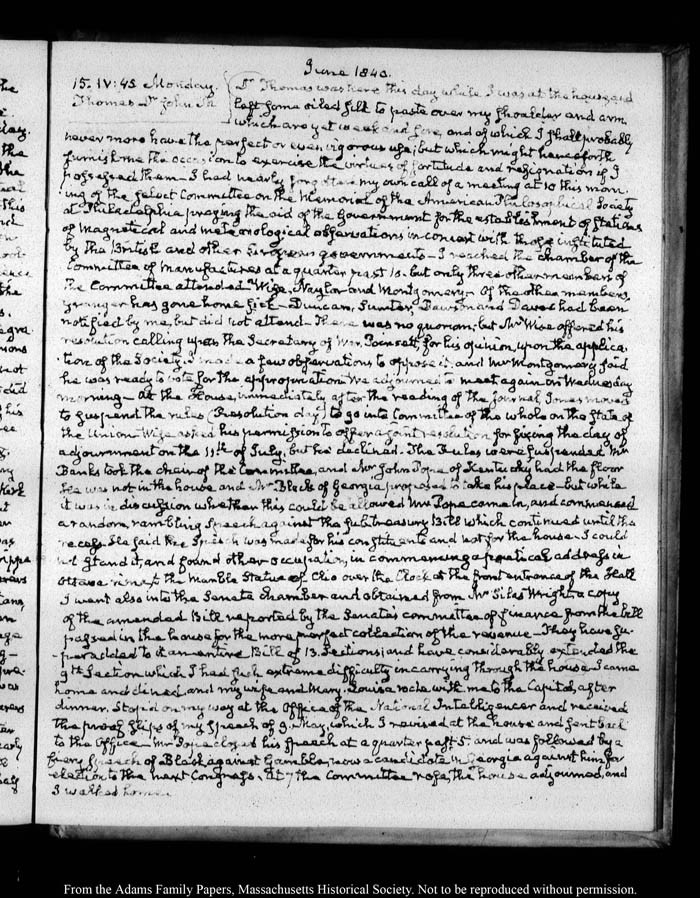 June 1840.
15. IV:45 Monday.
Thomas Dr John M
Dr Thomas was here this day while I was at the house and
left some oiled silk to paste over my shoulder and arm
which are yet weak and sore, and of which I shall probably
never more have the perfect or even vigorous use; but which might henceforth
furnish me the occasion to exercise the virtues of fortitude and resignation if I
possessed them — I had nearly forgotten my own call of a meeting at 10 this morn-
ing of the select Committee on the Memorial of the American Philosophical Society
at Philadelphia praying the aid of the Government for the establishment of stations
of magnetical and meteorological observations in concert with those instituted
by the British and other European governments — I reached the chamber of the
Committee of Manufactures at a quarter past 10. but only three other members of
the Committee attended. Wise, Naylor and Montgomery — Of the other members,
younger has gone home sick — Duncan, Sumter, Dawson and Davee had been
notified by me, but did not attend — There was no quorum; but Mr Wise offered his
resolution calling upon the Secretary of War, Poinsett, for his opinion, upon the applica-
tion of the Society. I made a few observations to oppose it, and Mr Montgomery said
he was ready to vote for the appropriation. We adjourned to meet again on Wednesday
morning — At the House, immediately after the reading of the Journal Jones moved
to suspend the rules (Resolution day) to go into Committee of the whole on the state of
the Union. Wise asked his permission to offer a joint resolution for fixing the day of
adjournment on the 11th of July; but he declined. The Rules were suspended Mr
Banks took the chair of the Committee, and Mr John Pope of Kentucky had the floor
He was not in the house and Mr Black of Georgia proposed to take his place — but while
it was in discussion whether this could be allowed Mr Pope came in, and commenced
a random, rambling speech against the subtreasury Bill which continued until the
recess. He said his speech was made for his constituents and not for the house. I could
not stand it, and found other occupation, in commencing a poetical address in
ottava rima to the Marble Statue of Clio over the Clock at the front entrance of the Hall
I went also into the Senate chamber and obtained from Mr Silas Wright a copy
of the amended Bill reported by the Senate's committee of finance from the bill
passed in the house for the more perfect collection of the revenue — They have su-
peradded to it an entire Bill of 13. Sections; and have considerably extended the
9th Section which I had such extreme difficulty in carrying through the house. I came
home and dined, and my wife and Mary-Louisa rode with me to the Capitol, after
dinner. Stop'd on my way at the Office of the National Intelligencer and received
the proof slips of my speech of 9. May, which I revised at the house and sent back
to the Office — Mr Pope closed his speech at a quarter past 5. and was followed by a
fiery speech of Black against Gamble, now a candidate in Georgia against him for
election to the next Congress. At 7 the Committee rose, the house adjourned, and
I walked home.
From the Adams Family Papers, Massachusetts Historical Society. Not to be reproduced without permission.